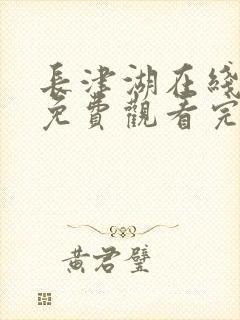 長津湖在綫
免費觀看完
黄君璧